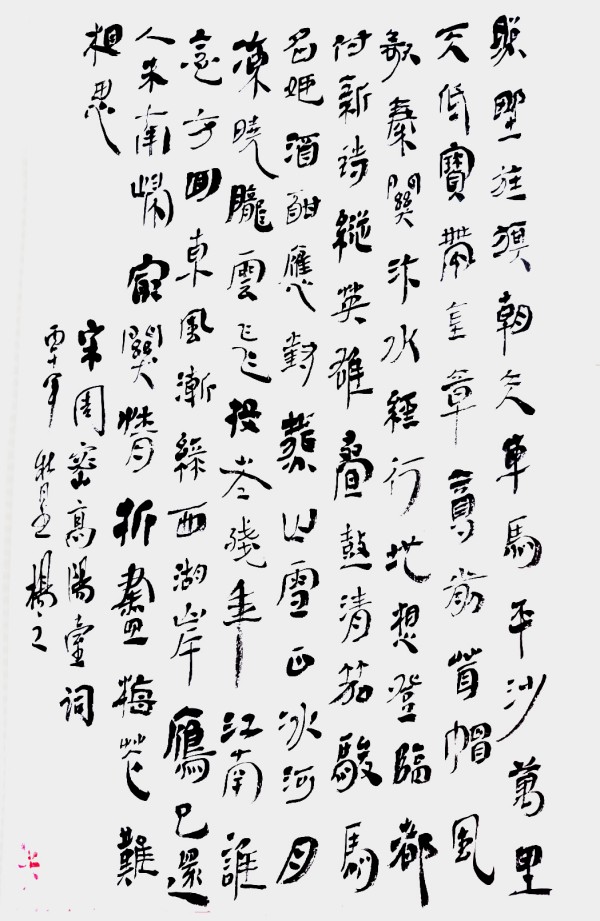 照野旌旗朝天車馬平沙萬里
天低寶帶金章尊前茸帽風
欹秦關汴水經行地想登臨都
付新詩縱英雄疊鼓清笳駿馬
名姬酒酣應對燕山雪正冰河月
凍曉隴雲飛投老殘年江南誰
念方回東風漸綠西湖岸雁已還
人未南歸最關情折盡梅花難
相思
宋周密高陽臺詞
丙午年秋月楊